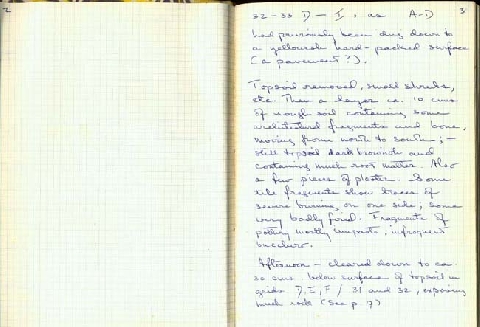 2
3
32-33 D - I, as A-D
had previously been dug down to
a yellowish hard-packed surface
(a pavement?).
Topsoil removed, small sherds,
etc. Then a layer ca. 10 cms.
of rough soil containing some
architectural fragments and bone,
moving from north to south; -
still topsoil dark brownish and
containing much root matter. Also
a few pieces of plaster. Some
tile fragments show traces of
severe burning on one side, some
very badly fired. Fragments of
pottery mostly, infrequent
bucchero.
Afternoon - cleared down to ca.
30 cms. below surface of topsoil in
grids D, E, F / 31 and 32, exposing
much rock (See p. 7)